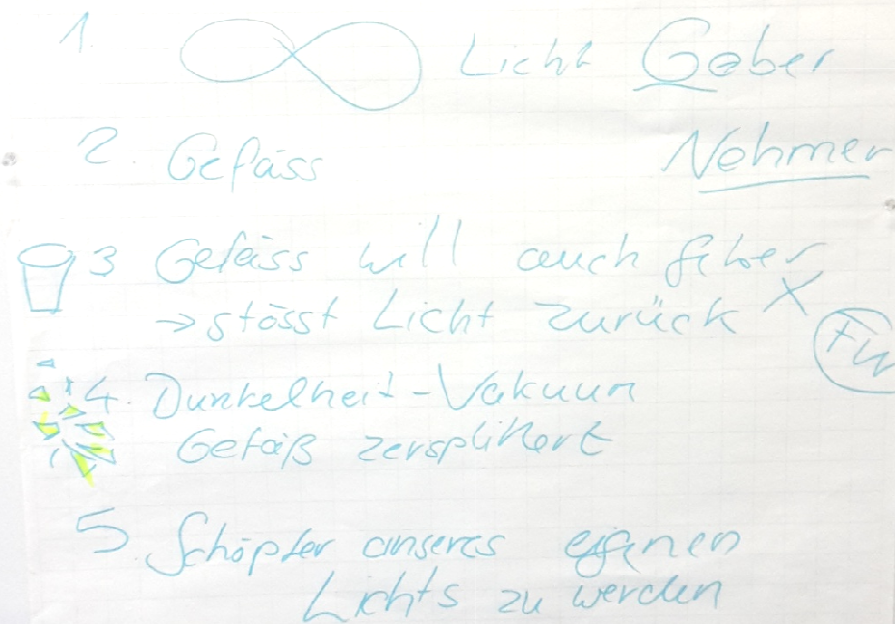 1. Licht Geber
2. Gefäss Nehmer
3 Gefäss will auch geber
→ stösst Licht zurück X
4. Dunkelheit - Vakuum
Gefäß zersplittert
5. Schöpfer unseres eigenen
Lichts zu werden